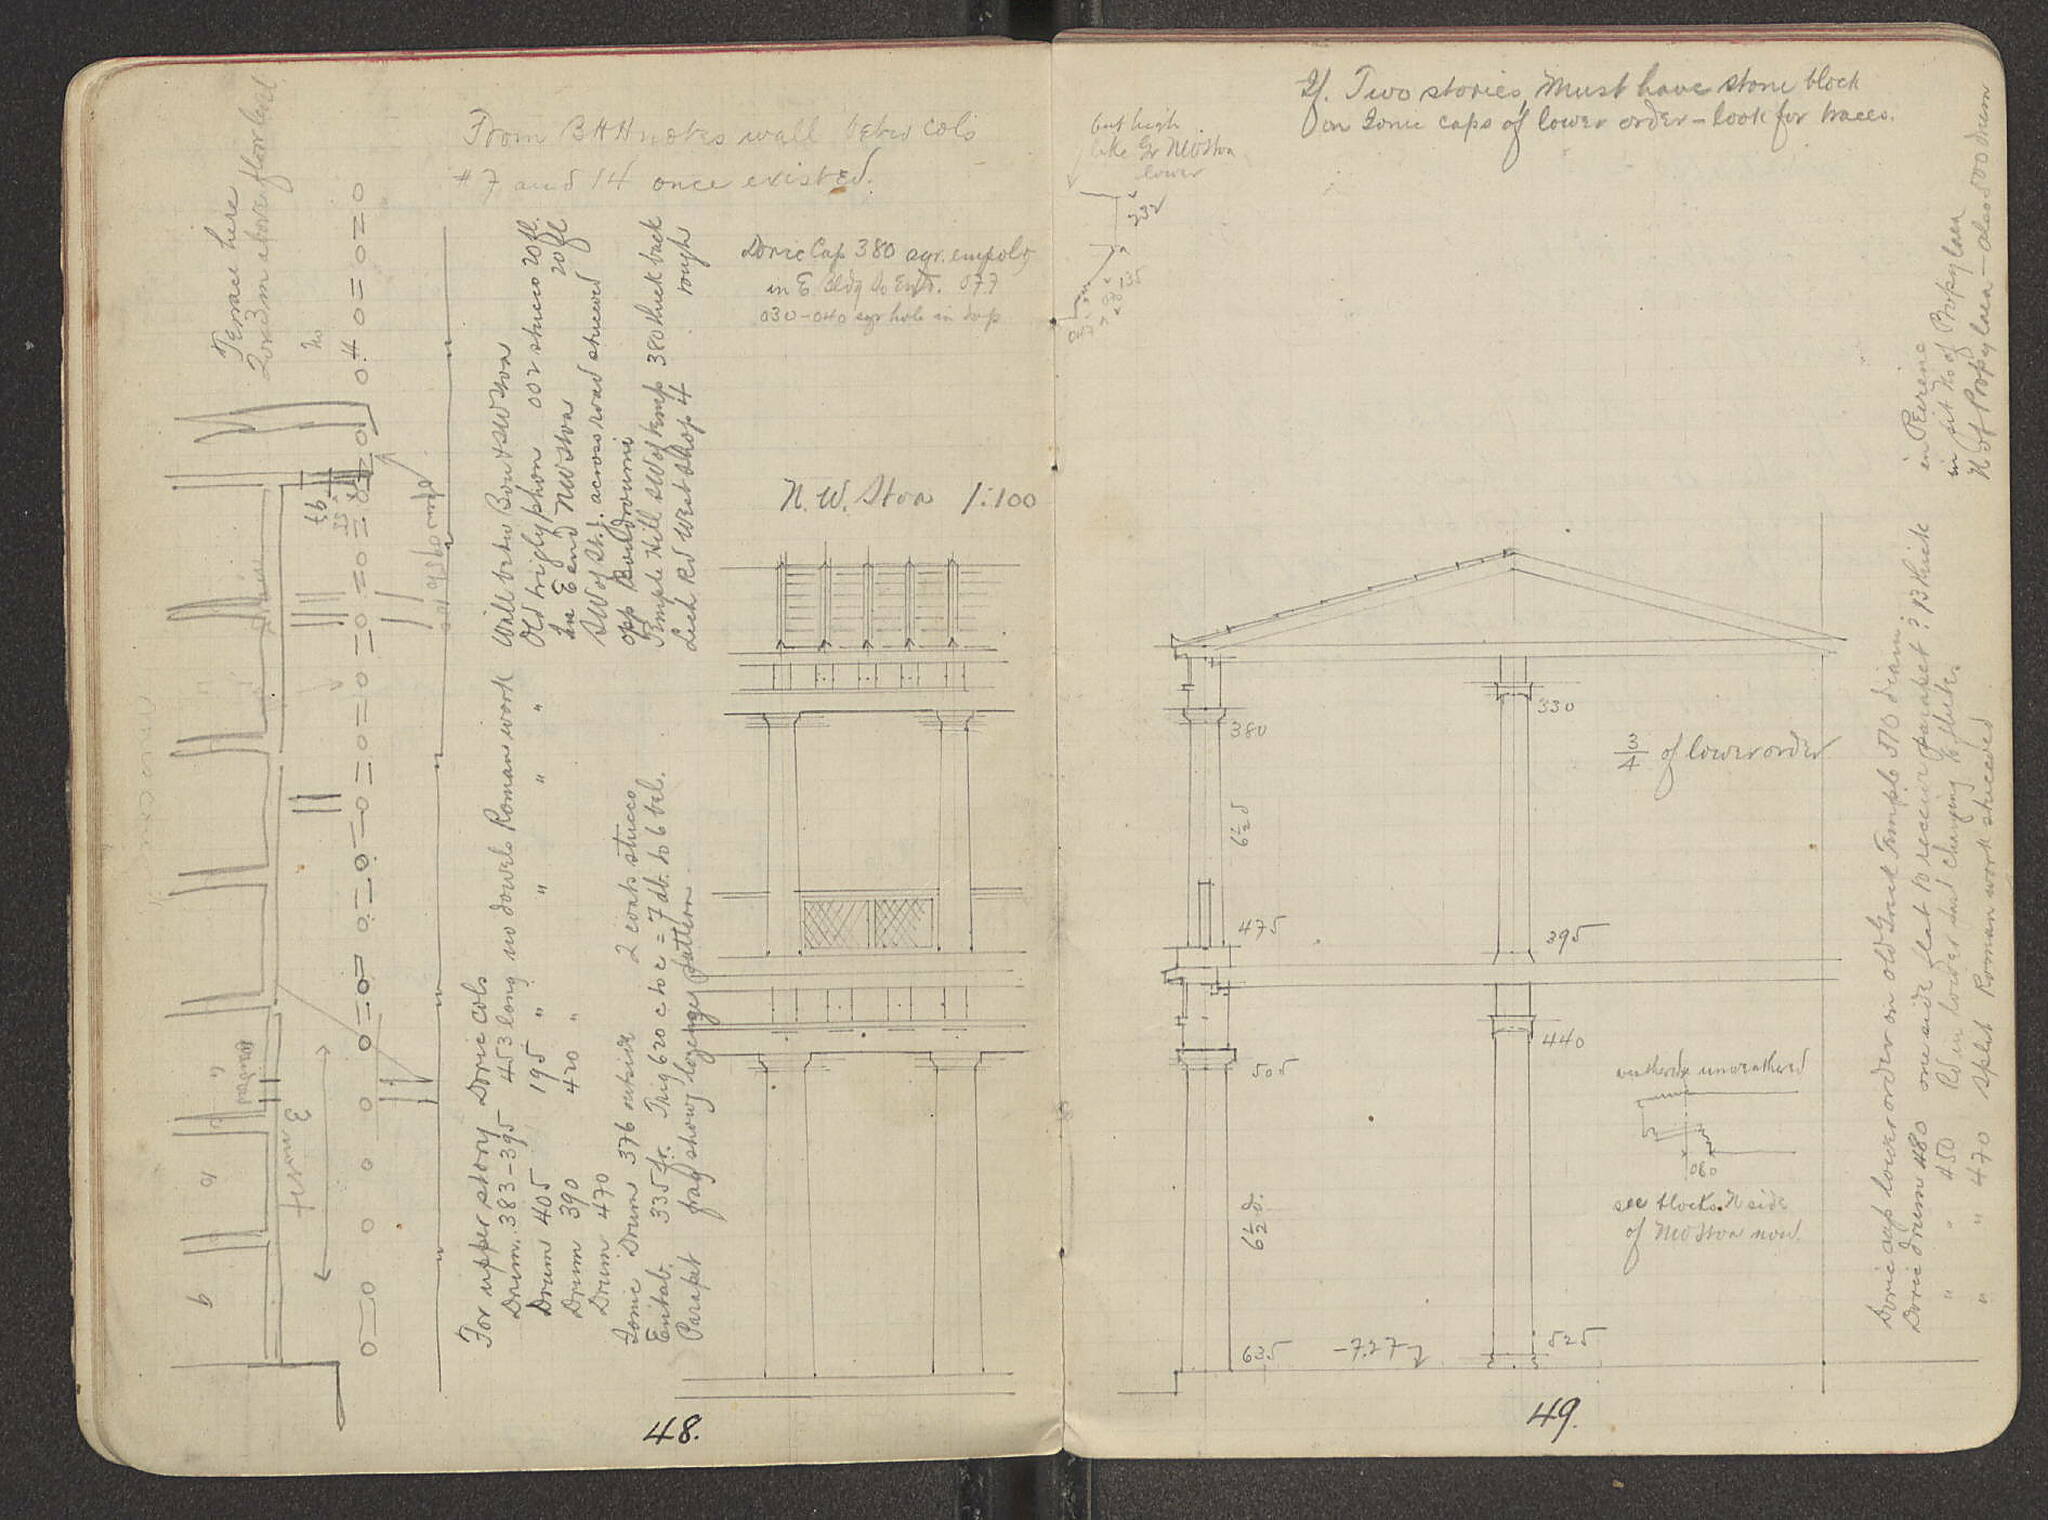 From BHH notes wall betw cols
#7 and 14 once existed.
Terrace here
above floor level
Doric Cap 380 sqr. empoly
in E Bldg to Entr. 077
030-040 sqr hole in top
Wall betw Bou + SW Stoa
Old triglyphon 002 stucco 20 fl.
In E end NW Stoa 20 fl
SW of St. across road stuccoed
opp Bouldroumi
Temple Hill SW of temp 380 thick back
Lech Rd West Shop 4 rough
For upper story Doric Cols
Drum. 383-395 453 long no dowels Roman work
Drum 405 195 " " " "
Drum 390 420 "
Drum 470
Ionic Drum 376 outside 2 coats stucco
Entab. 335 fr. Trig 620 c to c = 7 db. to 6 bel.
Parapet frag shows lozenge pattern
N. W. Stoa 1:100
48.
If Two stories, Must have stone block
on Ionic caps of lower order - look for traces.
but high
like Gr NW Stoa
lower
232
135
380
330
3/4 of lower order
6½ d
475
395
505
440
weathered unweathered
060
see blocks N side
of NW Stoa now.
6½ d.
635
-7.27
525
Doric cap lower order in old Greek Temple 510 diam; in Peirene
Doric drum 480 one side flat to receive parapet? 13 thick in sit. No of Propylaea
" " 450 Rd in lower shaft changing to flutes. N of Propylaea - also 500 drum
" " 470 split Roman work stuccoed
49.